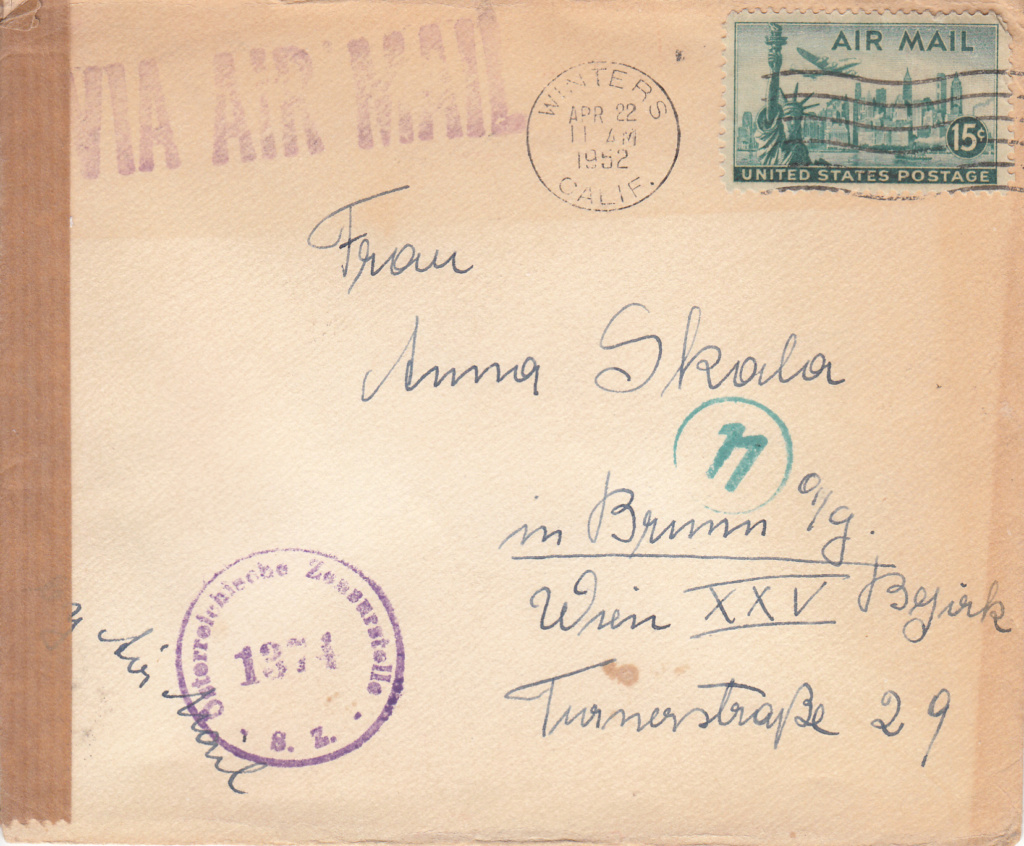 VIA AIR MAIL
WINTERS
APR 22
11 AM
1952
CALIF.
AIR MAIL
15¢
UNITED STATES POSTAGE
Frau
Anna Skala
in Brunn a/g.
Wien XXV Bezirk
Turnerstraße 29
Österreichische Zensurstelle
1374
S. Z.
Air Mail